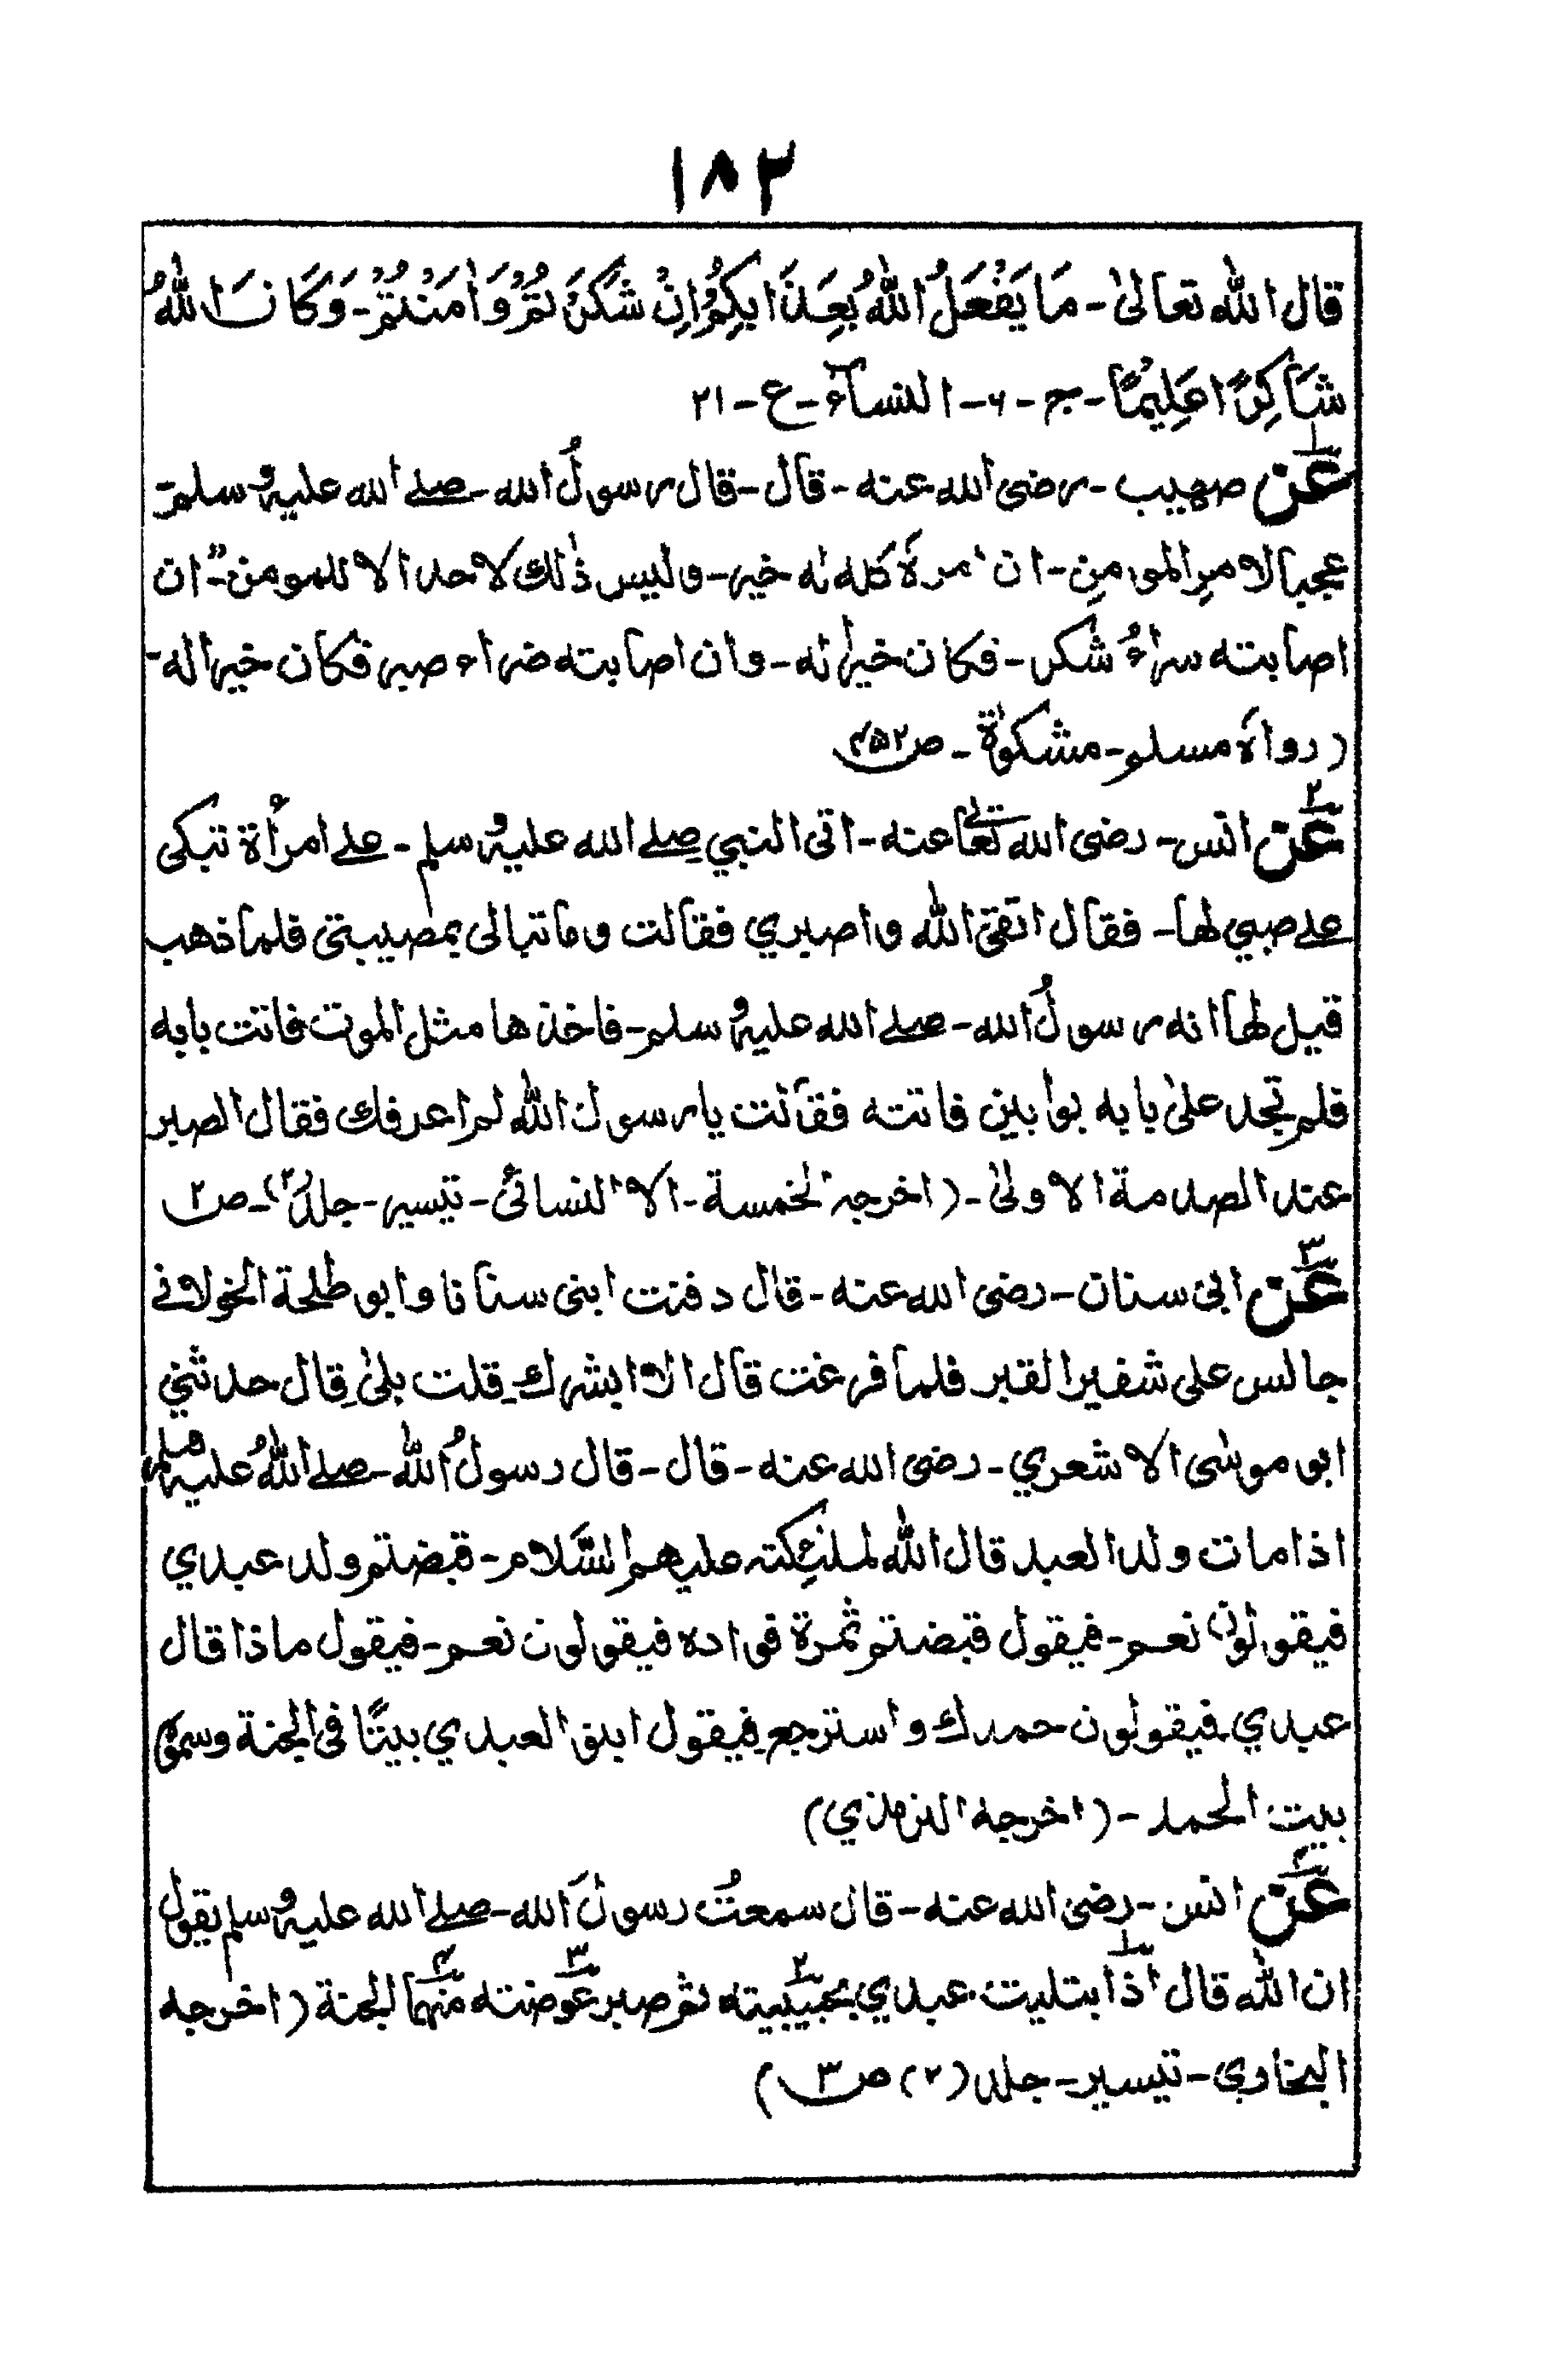 ۱۸۲
قال الله تعالیٰ - مَا يَفْعَلُ اللّٰهُ بِعَذَابِكُمْ اِنْ شَكَرْتُمْ وَاٰمَنْتُمْ - وَكَانَ اللّٰهُ
شَاكِرًا عَلِيْمًا - ج - ۶ - النسآء - ع - ۲۱
۱ عن صهيب - رضی الله عنه - قال - قال رسولُ الله - صلے الله عليه وسلم -
عجبا لامرِ المومنِ - ان امرهٗ كله له خير - وليس ذٰلك لاحد الا للمومن - ان
اصابته سراءُ شكر - فكان خيرا له - وان اصابته ضراء صبر فكان خيرا له -
( رواهٗ مسلم - مشكوٰة - ص ۴۵۲
۲ عن انس - رضی الله تعالیٰ عنه - اتی النبي صلے الله عليه وسلم - علے امرأة تبكی
علے صبي لها - فقال اتقی الله واصبري فقالت وما تبالی بمصيبتی فلما ذهب
قيل لها انه رسولُ الله - صلے الله عليه وسلم - فاخذها مثل الموت فاتت بابه
فلم تجد علیٰ بابه بوابين فاتته فقالت يا رسول الله لم اعرفك فقال الصبر
عند الصدمة الاولیٰ - ( اخرجه الخمسة - الا النسائی - تيسير - جلد ۲ ) - ص ۲
۳ عن ابی سنان - رضی الله عنه - قال دفنت ابنی سنانا وابو طلحة الخولانے
جالس علی شفير القبر فلما فرغت قال الا ابشرك قلت بلیٰ قال حدثني
ابو موسٰی الاشعري - رضی الله عنه - قال - قال رسولُ الله - صلے اللهُ عليه وسلم
اذا مات ولد العبد قال الله لملٰئكته عليهم السَّلام - قبضتم ولد عبدي
فيقولون نعم - فيقول قبضتم ثمرة فواده فيقولون نعم - فيقول ماذا قال
عبدي فيقولون حمدك واسترجع فيقول ابنوا لعبدي بيتًا فی الجنة وسموه
بيت الحمد - ( اخرجه الترمذي )
۴ عن انس - رضی الله عنه - قال سمعتُ رسولَ الله - صلے الله عليه وسلم يقول
ان الله قال اذا ابتليت عبدي بحبيبيته ثم صبر عوضته منهما الجنة ( اخرجه
البخاري - تيسير - جلد (۲) ص ۳ )